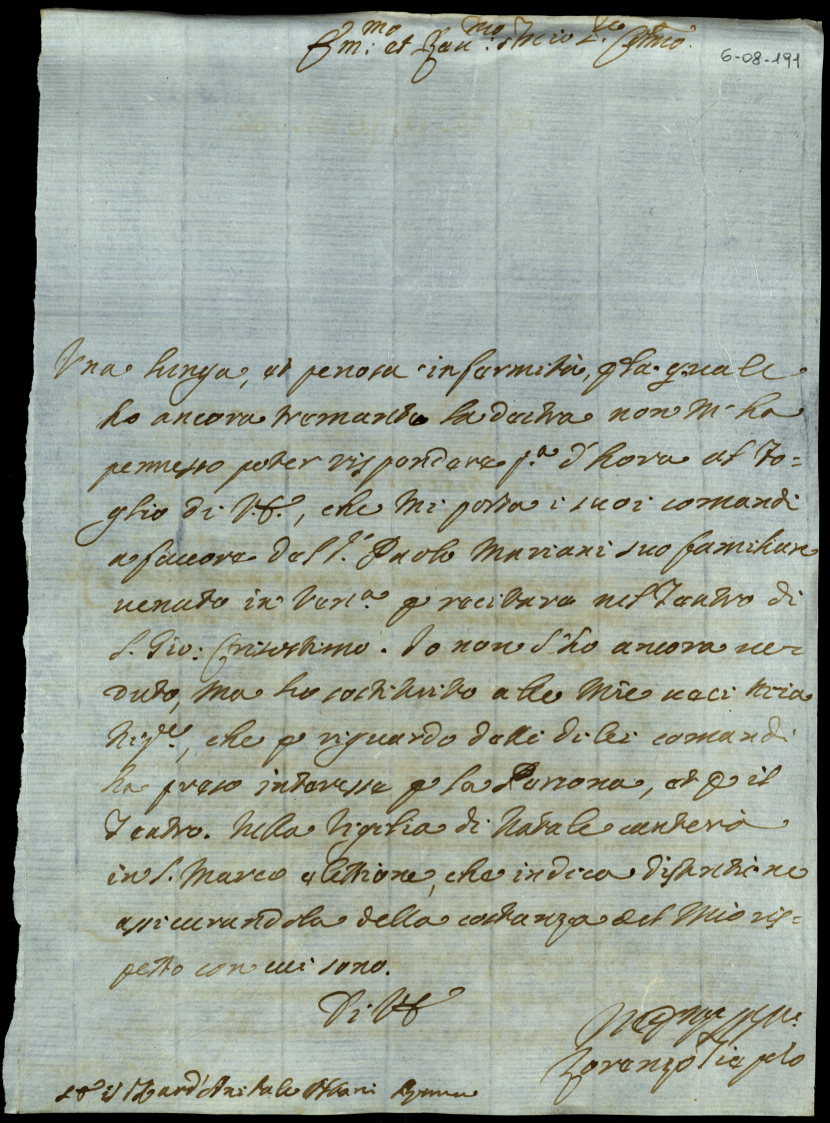 Em.mo et Rev.mo Sig.
6-08-191
Una lunga, et penosa infermità, p la quale
ho ancora tremante la destra non m'ha
permesso poter rispondere p.a d'hora al Fo=
glio di V.E., che mi porta i suoi comandi
a favore del S.r Paolo Mariani suo familiare
venuto in Ven.a p recitare nel Teatro di
S. Gio: Crisostimo. Io non l'ho ancora ve=
duto, ma ho sostituito alle mie veci
che p riguardo delli di lei comandi
ha preso interesse p la Persona, et p il
Teatro. Nella Vigilia di Natale canterà
in S. Marco, che indica
assicurandola della costanza del mio ris=
petto con cui sono.
Di V.E.
Lorenzo Tiepolo
S.r Card. Anibale Albani Roma